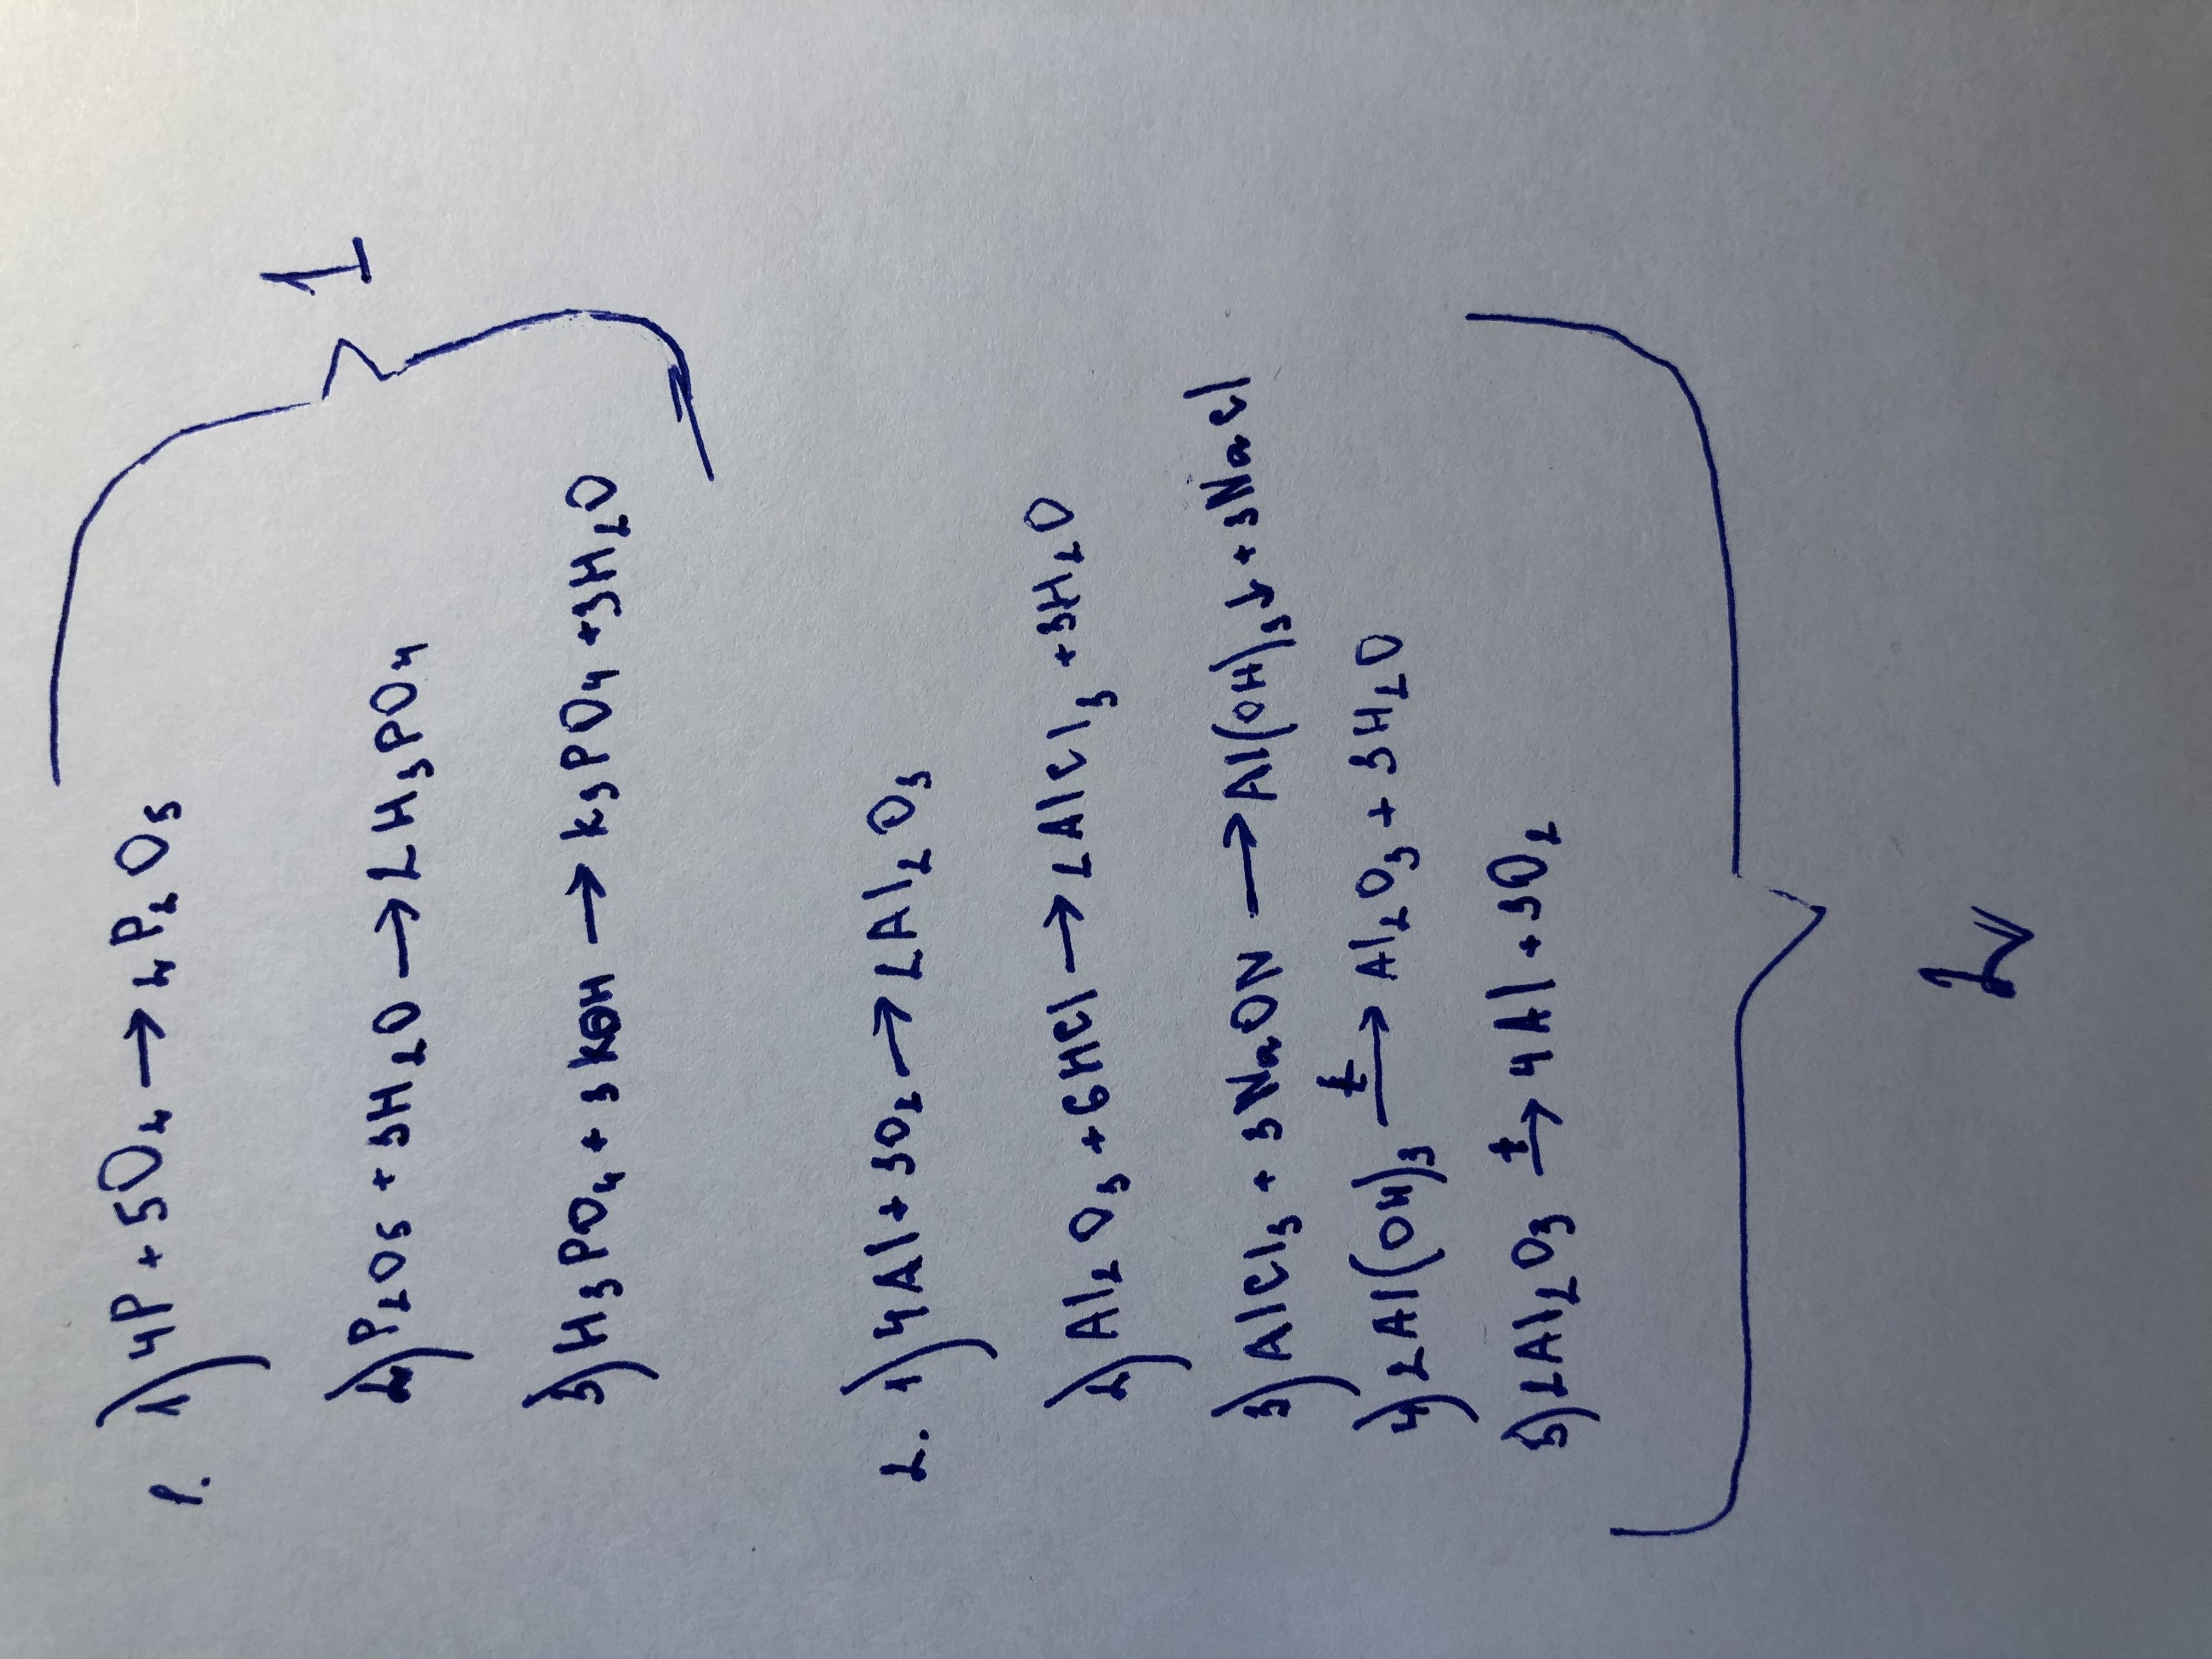 1. 1) 4P + 5O₂ → 2P₂O₅
1
2) P₂O₅ + 3H₂O → 2H₃PO₄
3) H₃PO₄ + 3KOH → K₃PO₄ + 3H₂O
2. 1) 4Al + 3O₂ → 2Al₂O₃
2) Al₂O₃ + 6HCl → 2AlCl₃ + 3H₂O
3) AlCl₃ + 3NaON → Al(OH)₃↓ + 3NaCl
4) 2Al(OH)₃ t→ Al₂O₃ + 3H₂O
5) 2Al₂O₃ t→ 4Al + 3O₂
2